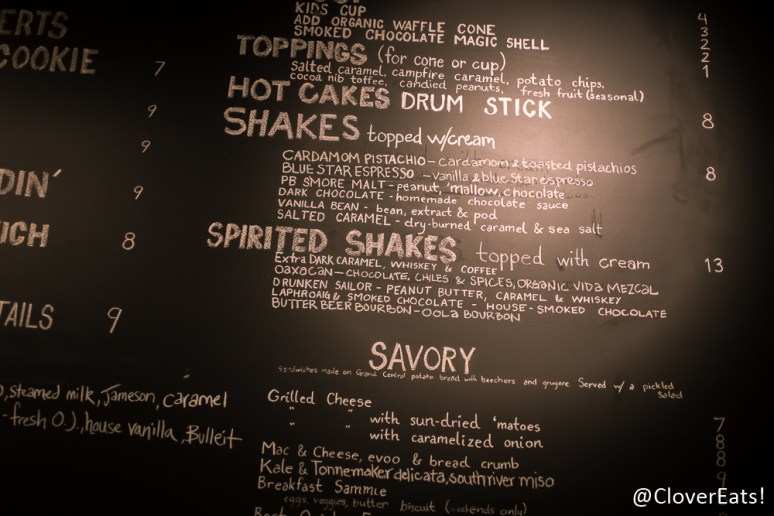 ERTS
COOKIE 7
9
9
DIN' 9
ICH 8
TAILS 9
, steamed milk, Jameson, caramel
-fresh O.J., house vanilla, Bulleit
KIDS CUP 4
ADD ORGANIC WAFFLE CONE 3
SMOKED CHOCOLATE MAGIC SHELL 2
TOPPINGS (for cone or cup) 2
Salted caramel, campfire caramel, potato chips, 1
cocoa nib toffee, candied peanuts, fresh fruit (seasonal)
HOT CAKES DRUM STICK 8
SHAKES topped w/cream
CARDAMOM PISTACHIO - cardamom & toasted pistachios 8
BLUE STAR ESPRESSO - vanilla & blue star espresso
PB SMORE MALT - peanut, 'mallow, chocolate
DARK CHOCOLATE - homemade chocolate sauce
VANILLA BEAN - bean, extract & pod
SALTED CARAMEL - dry-burned caramel & sea salt
SPIRITED SHAKES topped with cream 13
Extra DARK CARAMEL, WHISKEY & COFFEE
OAXACAN - CHOCOLATE, CHILES & SPICES, ORGANIC VIDA MEZCAL
DRUNKEN SAILOR - PEANUT BUTTER, CARAMEL & WHISKEY
LAPHROAIG & SMOKED CHOCOLATE - HOUSE-SMOKED CHOCOLATE
BUTTER BEER BOURBON - OOLA BOURBON
SAVORY
Sandwiches made on Grand Central potato bread with beechers and gruyere Served w/ a pickled
salad
Grilled Cheese 7
" " with sun-dried 'matoes 8
" " with caramelized onion 8
Mac & Cheese, evoo & bread crumb 8
Kale & Tonnemaker delicata, south river miso 9
Breakfast Sammie
eggs, veggies, butter biscuit (weekends only)
@CloverEats!